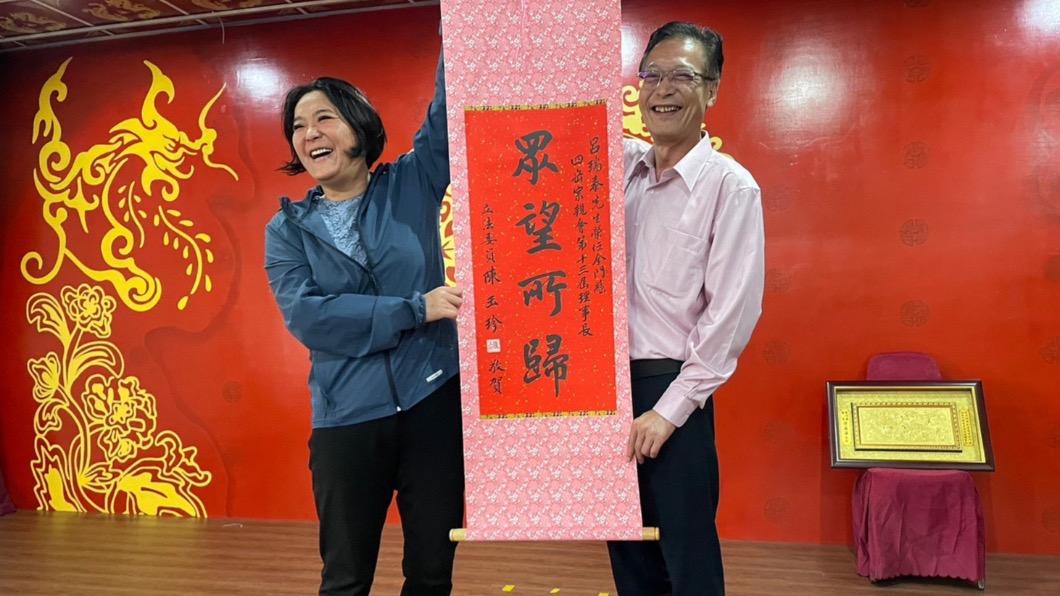 呂瑞泰先生榮任金門縣
四岳宗親會第十三屆理事長
眾望所歸
立法委員 陳玉珍 敬賀